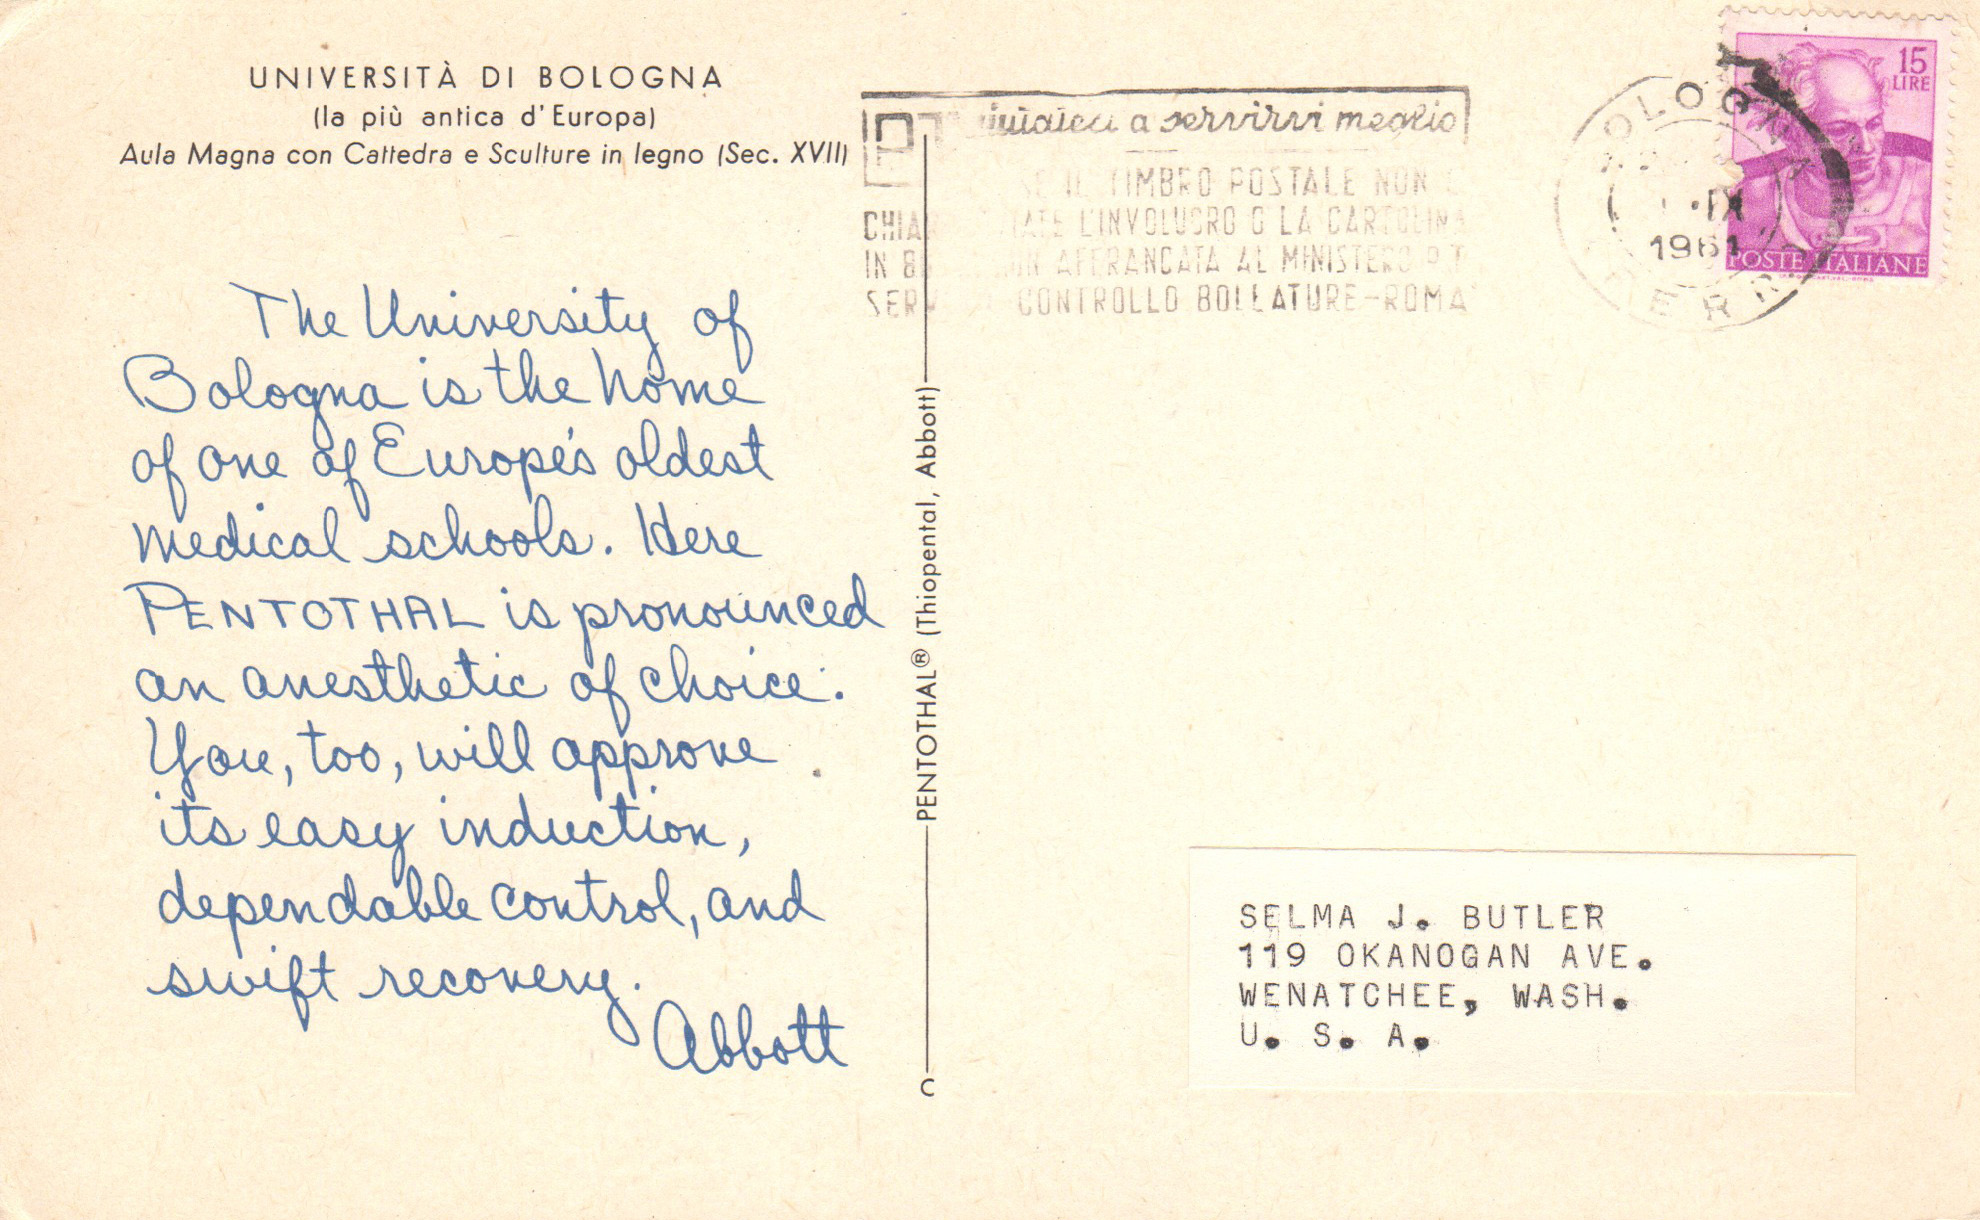 UNIVERSITÀ DI BOLOGNA
(la più antica d'Europa)
Aula Magna con Cattedra e Sculture in legno (Sec. XVII)
The University of
Bologna is the home
of one of Europe's oldest
medical schools. Here
PENTOTHAL is pronounced
an anesthetic of choice.
You, too, will approve
its easy induction,
dependable control, and
swift recovery.
Abbott
PENTOTHAL® (Thiopental, Abbott)
C
PT
a servirvi meglio
SE IL TIMBRO POSTALE NON
L'INVOLUCRO O LA CARTOLINA
IN AFFRANCATA AL MINISTERO P.T.
CONTROLLO BOLLATURE-ROMA
BOLOGNA
IX
1961
FERR
15
LIRE
POSTE ITALIANE
SELMA J. BUTLER
119 OKANOGAN AVE.
WENATCHEE, WASH.
U. S. A.